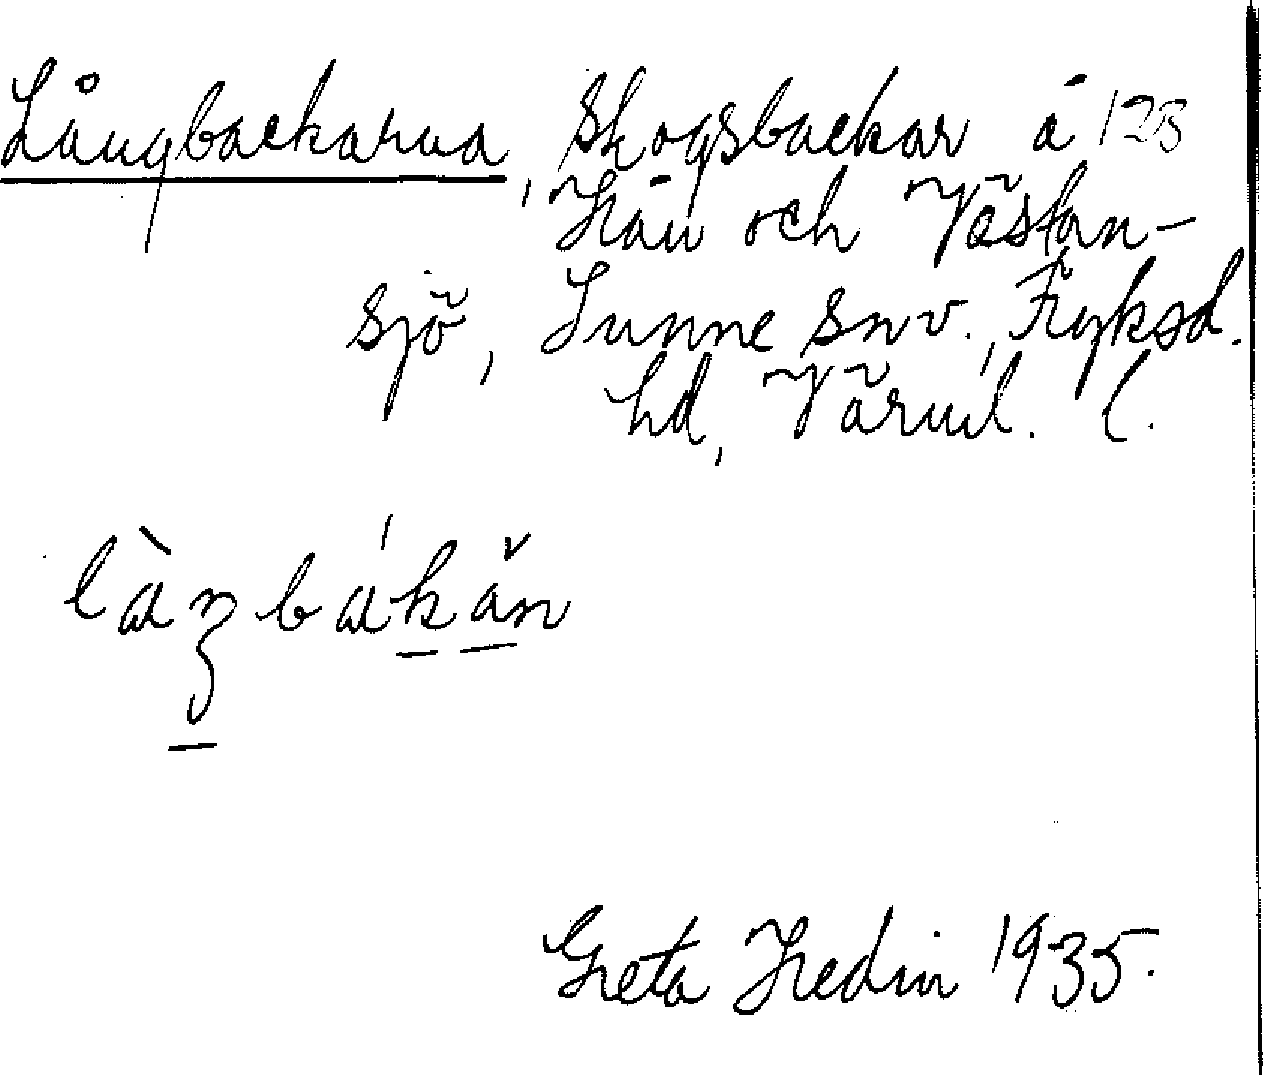 Långbackarna, Skogsbackar å 123
Hån och Västan-
sjö, Sunne snv., Fryksd.
hd, Värml. l.
làŋbákǎn
Greta Hedin 1935.